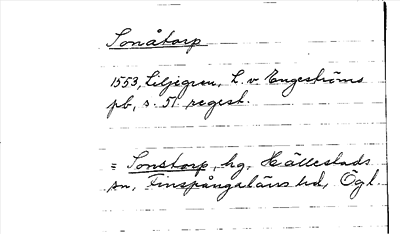 Sonåtorp
1553, Liljegren, L. v. Engeströms
pb, s. 51 regest.
= Sonstorp, hg, Hällestads
sn, Finspångaläns hd, Ögl.